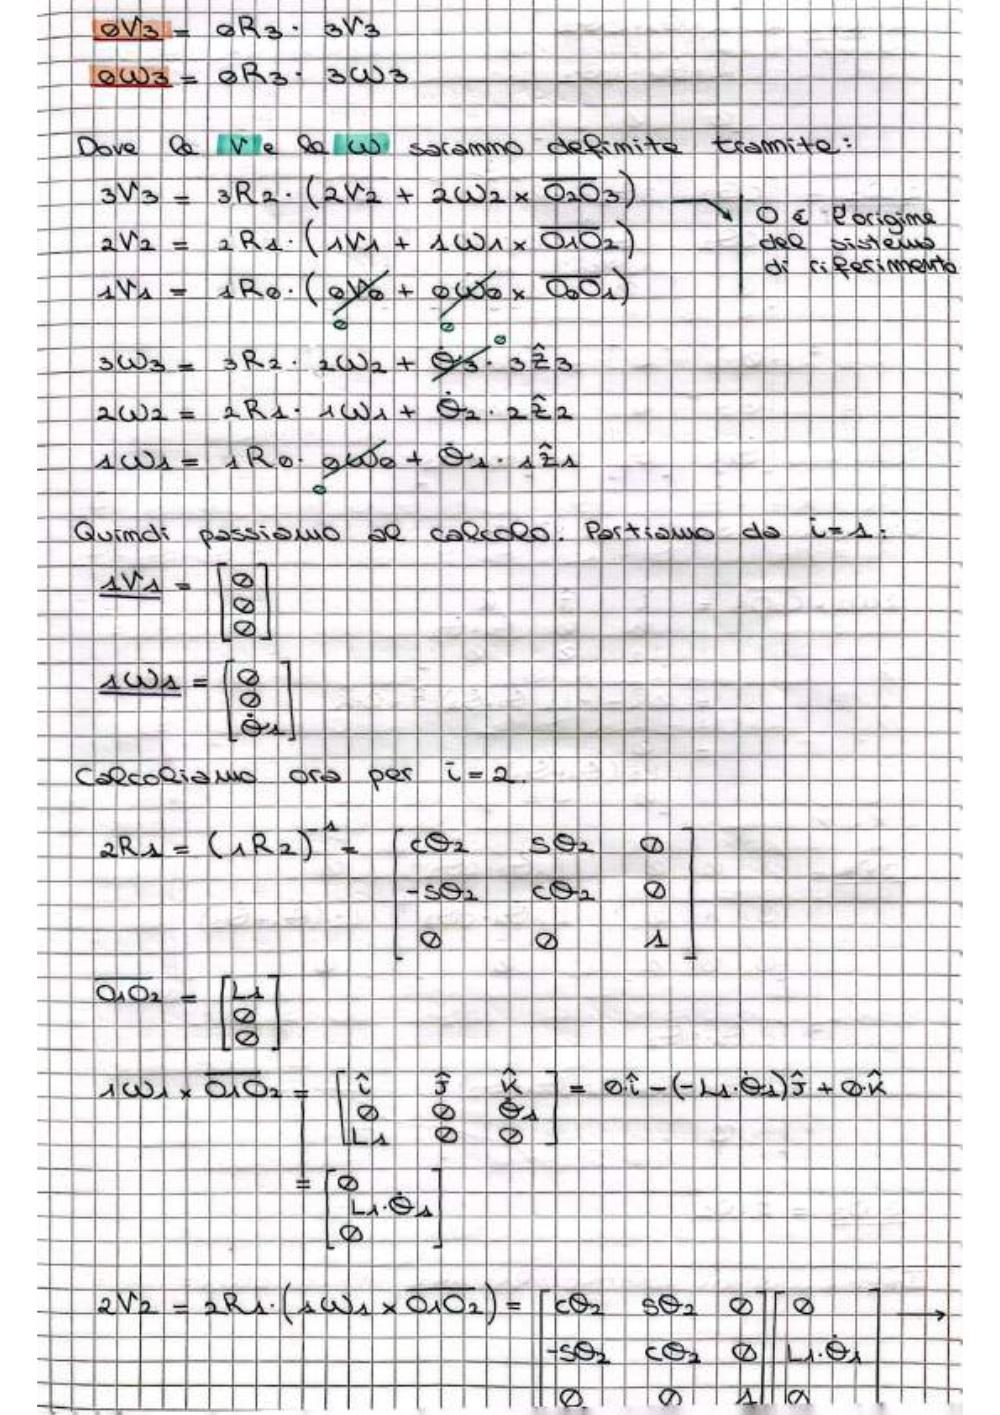 0V3 = 0R3 · 3V3
0ω3 = 0R3 · 3ω3
Dove la V e la ω saranno definite tramite:
3V3 = 3R2 · (2V2 + 2ω2 × O2O3)
2V2 = 2R1 · (1V1 + 1ω1 × O1O2)
1V1 = 1R0 · (0V0 + 0ω0 × O0O1)
0 0
O è l'origine
del sistema
di riferimento
0
3ω3 = 3R2 · 2ω2 + θ̇3 · 3ẑ3
2ω2 = 2R1 · 1ω1 + θ̇2 · 2ẑ2
1ω1 = 1R0 · 0ω0 + θ̇1 · 1ẑ1
0
Quindi passiamo al calcolo. Partiamo da i=1:
1V1 = [0
0
0]
1ω1 = [0
0
θ̇1]
Calcoliamo ora per i=2.
2R1 = (1R2)⁻¹ = [cθ2 sθ2 0
-sθ2 cθ2 0
0 0 1]
O1O2 = [L1
0
0]
1ω1 × O1O2 = [î ĵ k̂ = 0·î - (-L1·θ̇1)ĵ + 0·k̂
0 0 θ̇1
L1 0 0]
= [0
L1·θ̇1
0]
2V2 = 2R1 · (1ω1 × O1O2) = [cθ2 sθ2 0] [0 →
-sθ2 cθ2 0 L1·θ̇1
0 0 1 0